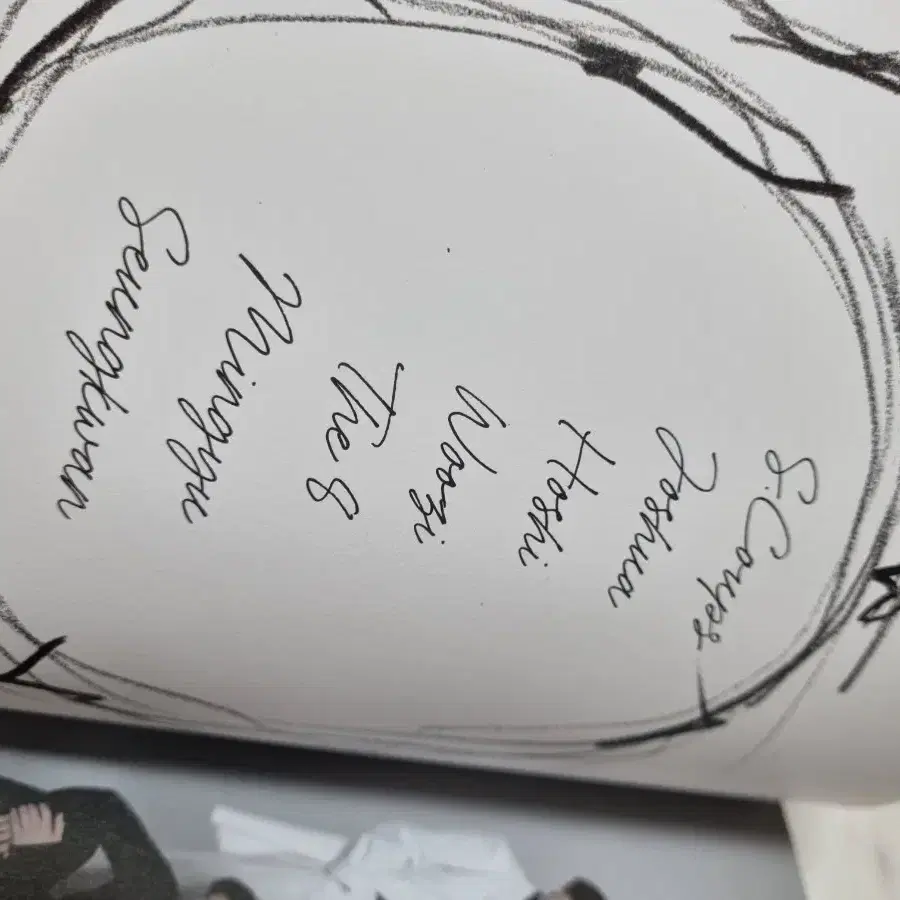 S.Coups
Joshua
Hoshi
Woozi
The 8
Mingyu
Seungkwan